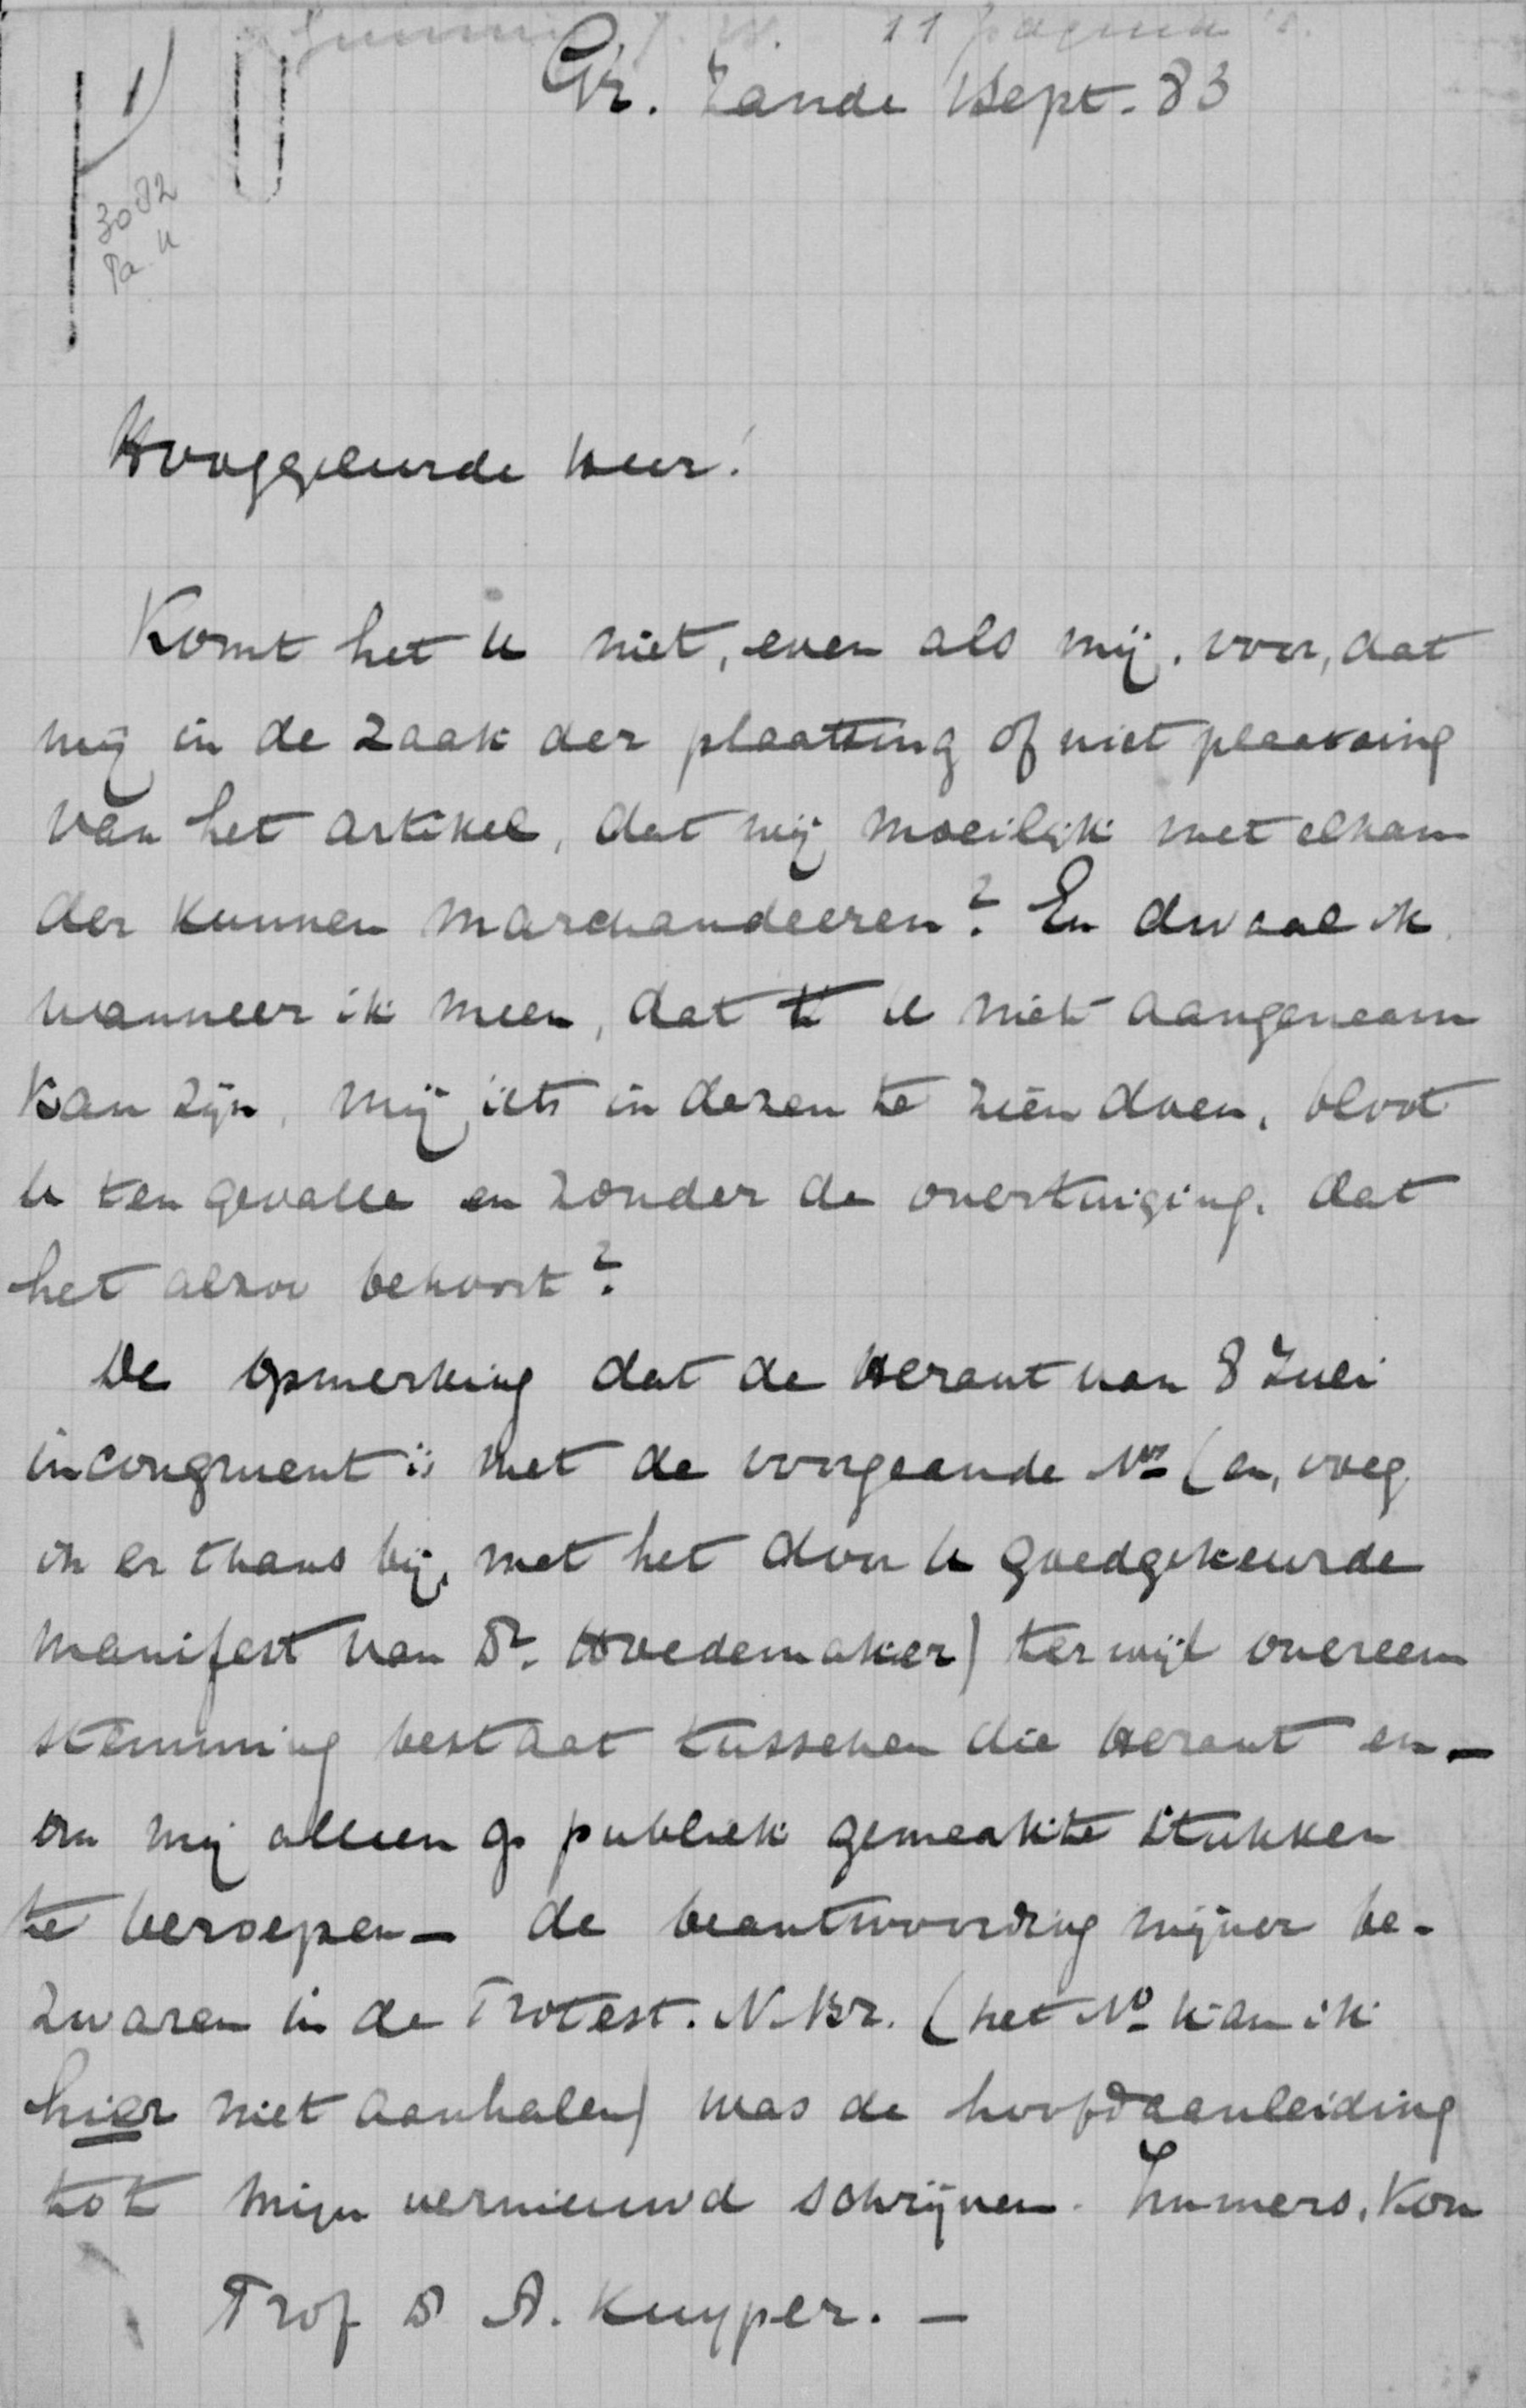 11 pagina's.
Gr. Zande 1 Sept. 83
1)
3082
Pa. u
Hooggeleerde Heer!
Komt het U niet, even als mij, voor, dat
wij in de zaak der plaatsing of niet plaatsing
van het artikel, dat wij moeilijk met elkan
der kunnen marchandeeren? En dwaal ik
wanneer ik meen, dat 't U niet aangenaam
kan zijn, mij iets in dezen te zien doen, bloot
U ten gevalle en zonder de overtuiging, dat
het alzoo behoort?
De opmerking dat de Heraut van 8 Juli
incongruent is met de voorgaande Nos (en, voeg
ik er thans bij, met het door U goedgekeurde
manifest van Dr. Hoedemaker) terwijl overeen
stemming bestaat tusschen die Heraut en —
om mij alleen op publiek gemaakte stukken
te beroepen — de beantwoording mijner be-
zwaren in de Protest. N.Br. (het No kan ik
hier niet aanhalen) was de hoofdaanleiding
tot mijn vernieuwd schrijven. Immers, kon
Prof Dr A. Kuyper. —